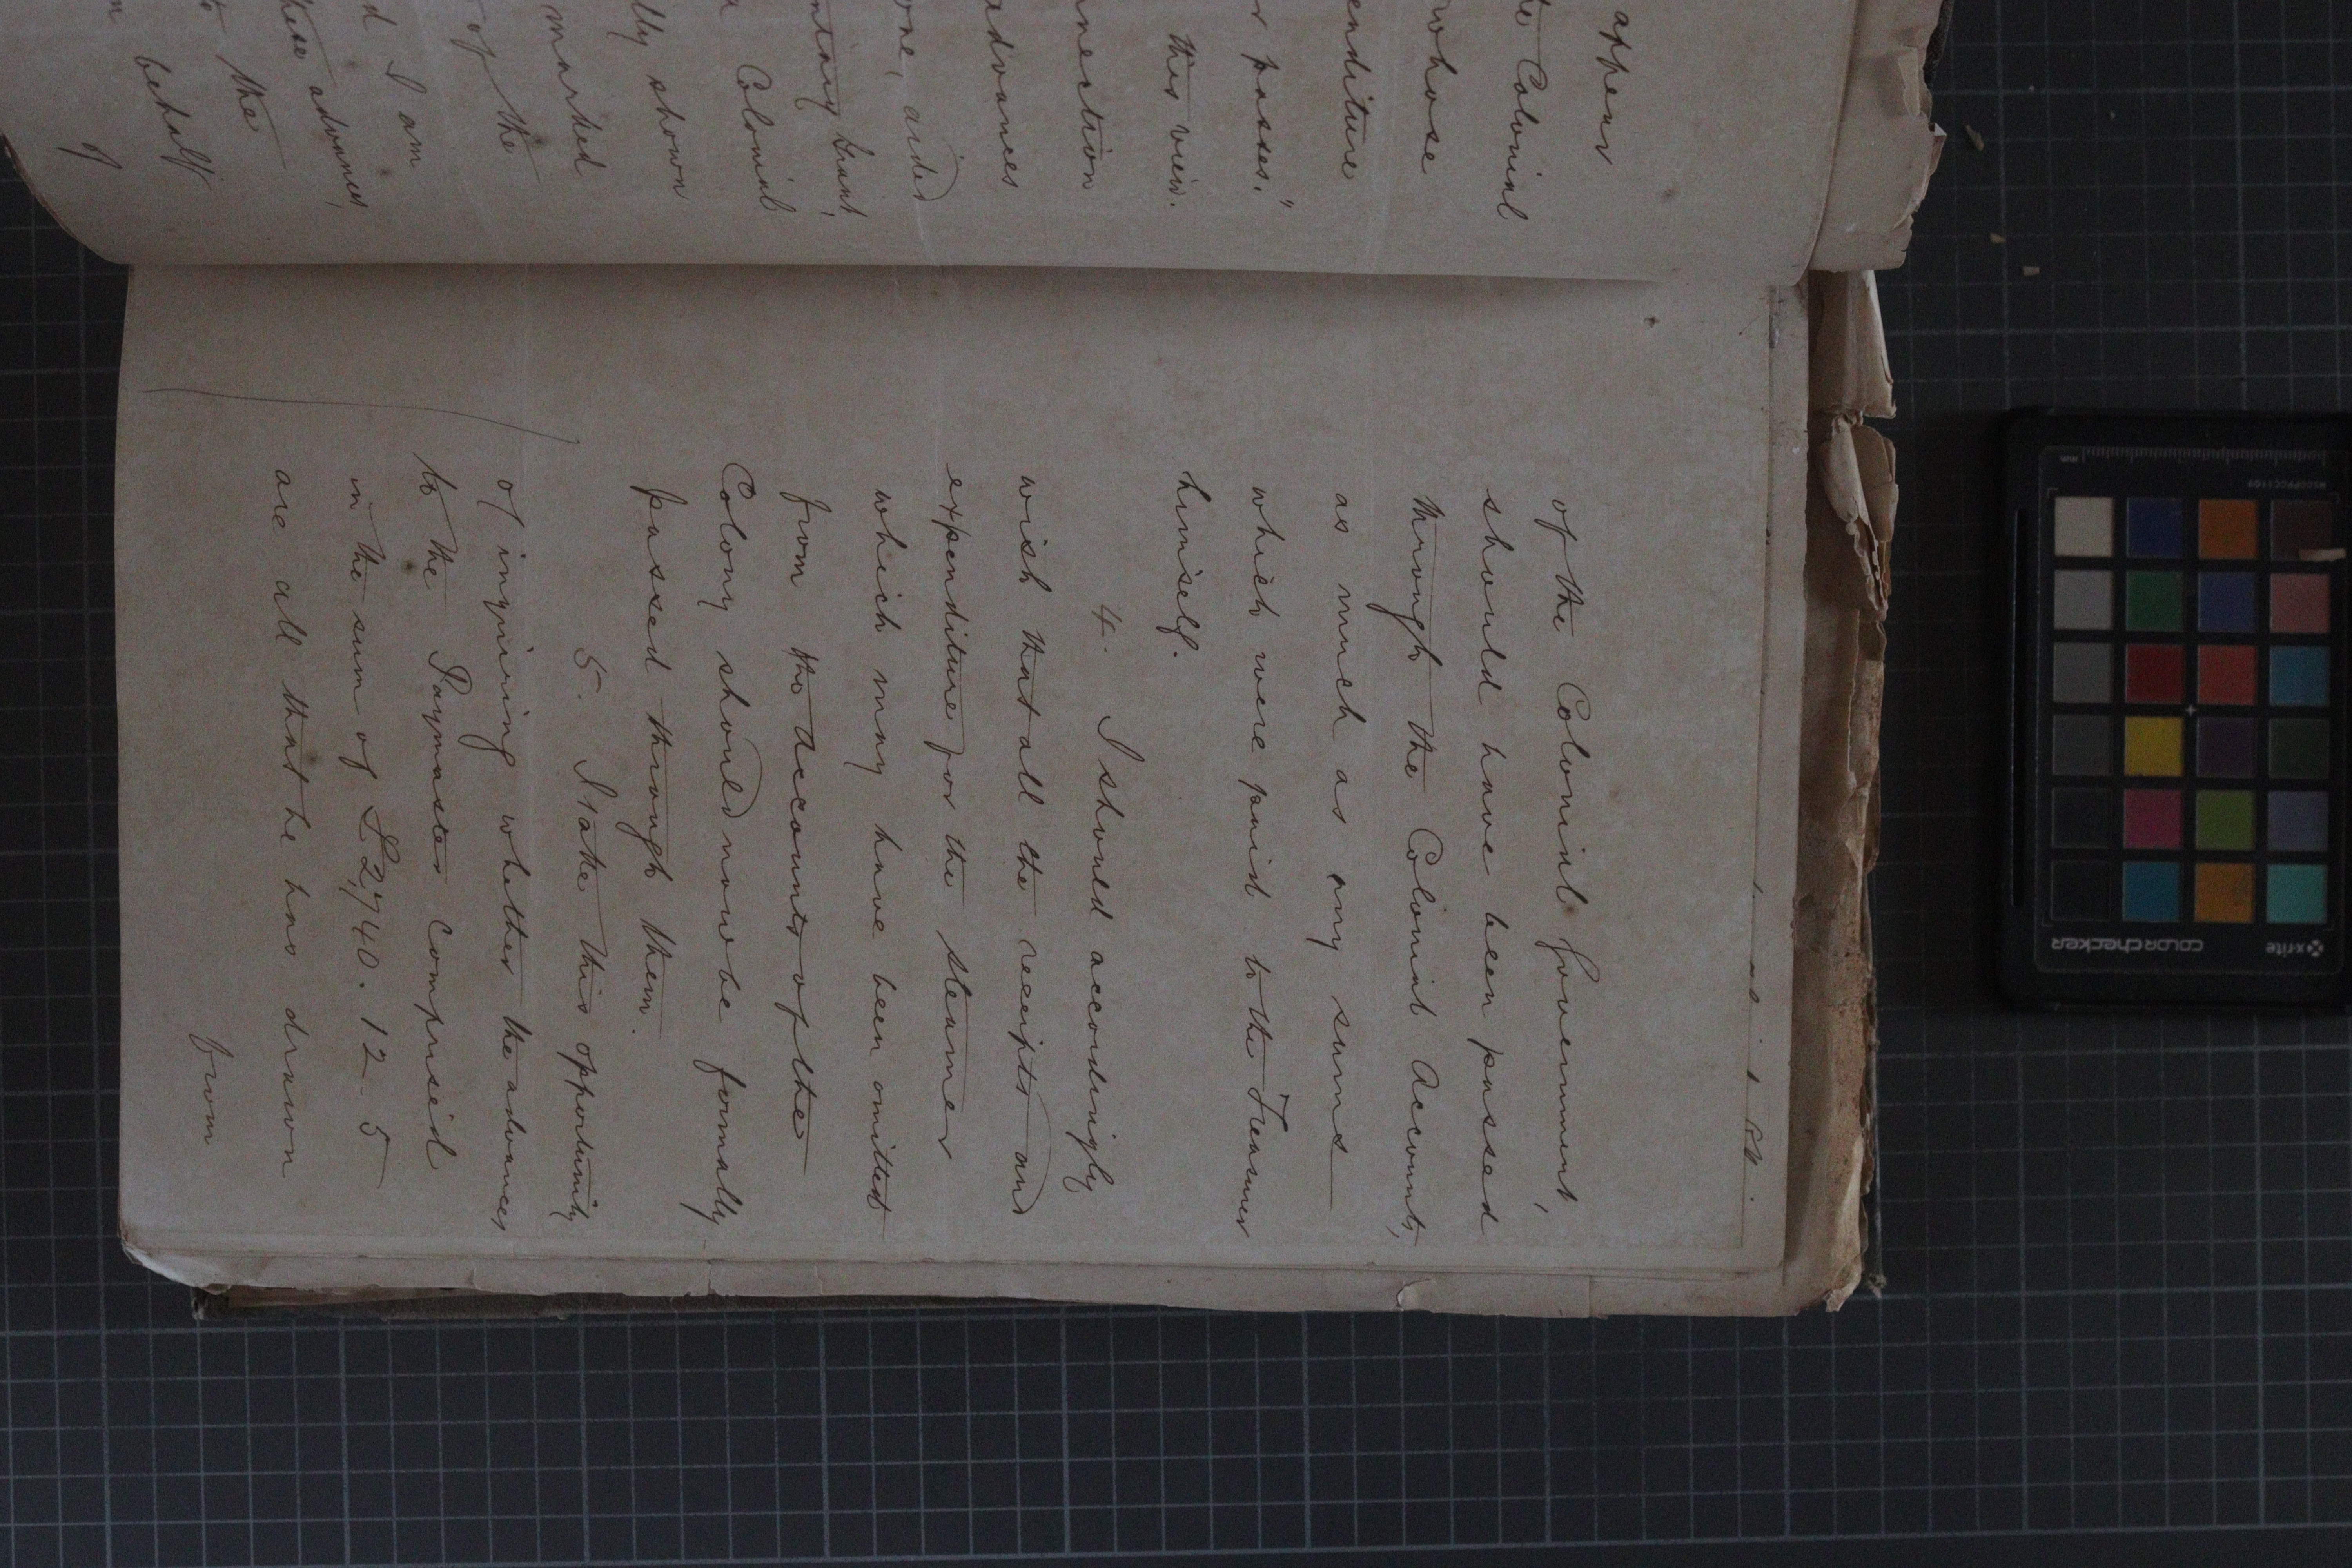 appear
Colonial
whose
enditure
r passes."
this view.
nnection
advances
one, aided
ntary Grant,
Colonial
lly shown
marked
of the
d I am
these advances,
the
behalf
of
of the Colonial Government,
should have been passed
through the Colonial Accounts,
as much as any sums
which were paid to the Treasurer
himself.
4. I should accordingly
wish that all the receipts and
expenditure for the steamer
which may have been omitted
from the Accounts of the
Colony should now be formally
passed through them.
5. I take this opportunity
of inquiring whether the advances
to the Paymaster comprised
in the sum of £2,740.12.5
are all that he has drawn
from
x-rite
colorchecker
MSCCPPCC1109